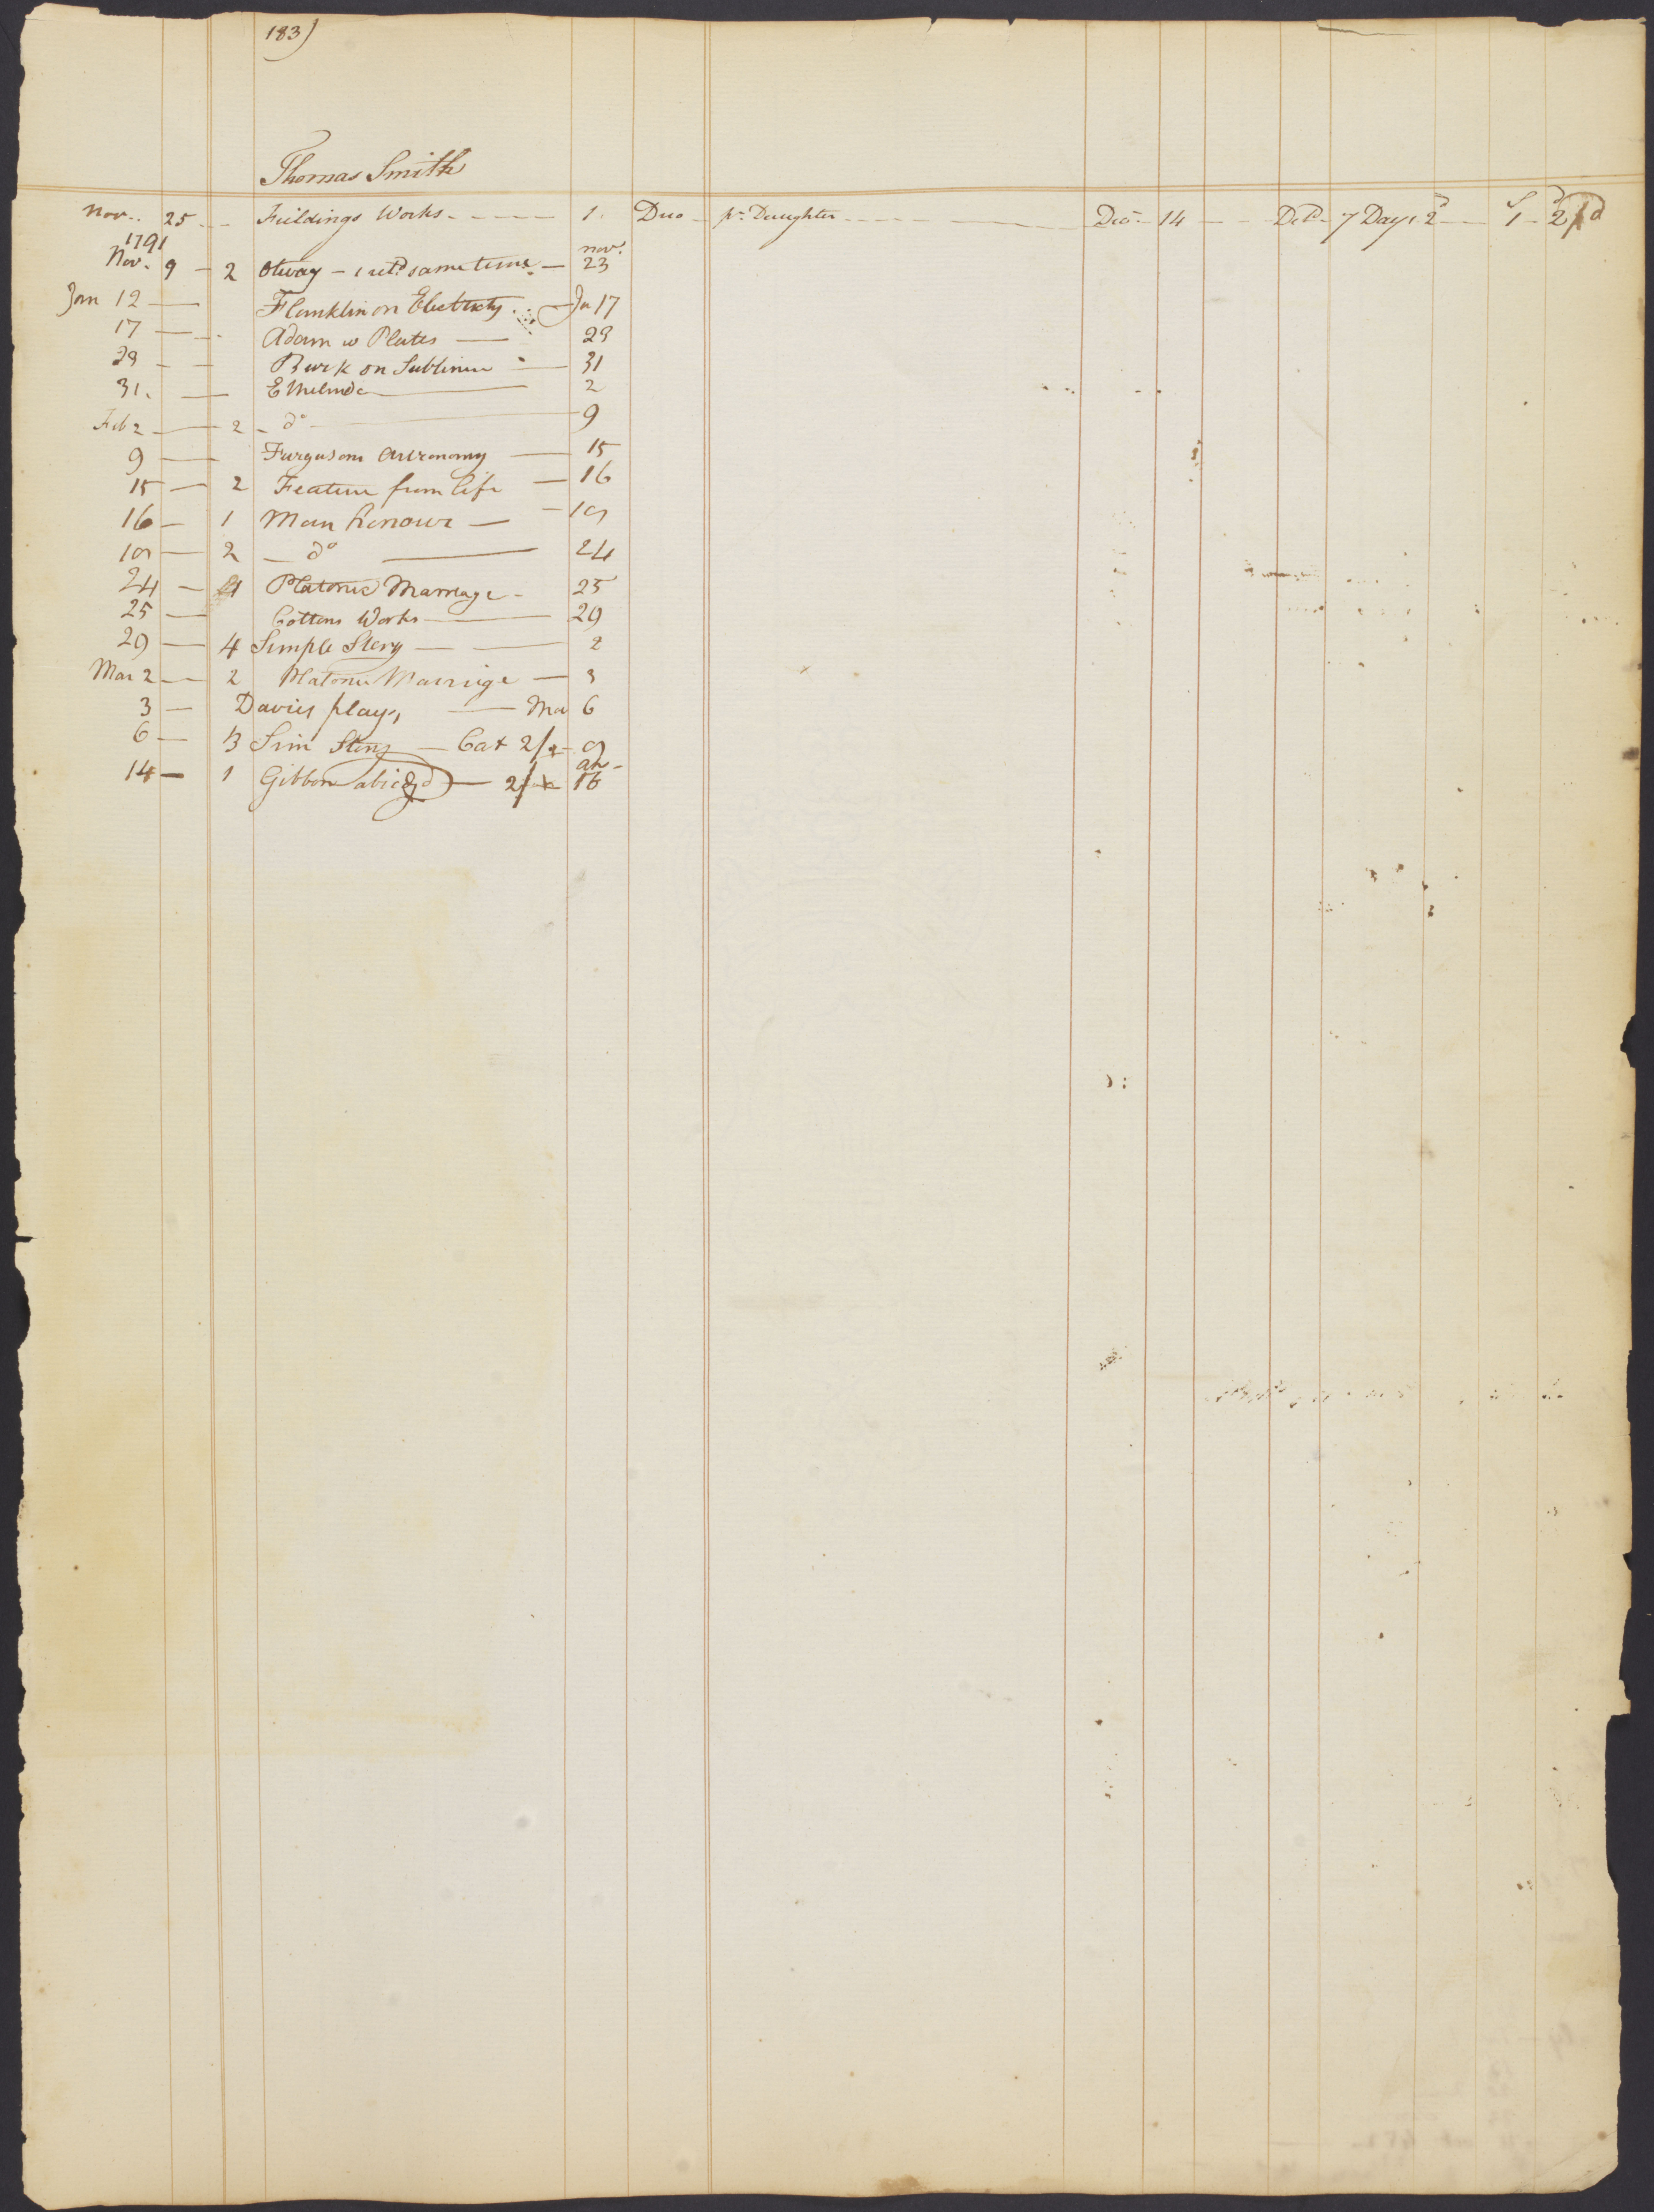 183)
Thomas Smith
Nov.. 25 - - Fieldings Works - - - - - 1. Duo - pr. Daughter - - - - Decr. - 14 - - Detd. - 7 Days 2d - - S 1 - 2d Pd
1791
Nov. 9 - 2 Otway - 1 retd. same time - Nov. 23
Jan 12 - Flanklin on Electricty - Ja 17
17 - - Adam w Plates - 28
28 - - Burk on Sublime - 31
31. - Ethelinda - 2
Feb 2 - 2 - do - 9
9 - Furgusons Astronomy - 15
15 - 2 Feature from Life - 16
16 - 1 Man honour - 19
19 - 2 - do - 24
24 - 1 Platonic Marriage - 25
25 - Cottons Works - 29
29 - 4 Simple Story - 2
Mar 2 - 2 Platonic Marriage - 3
3 - Davies plays, - Ma 6
6 - 3 Sim Story - Cat 2/ - 9
14 - 1 Gibbon abridgd - 2/ - 16